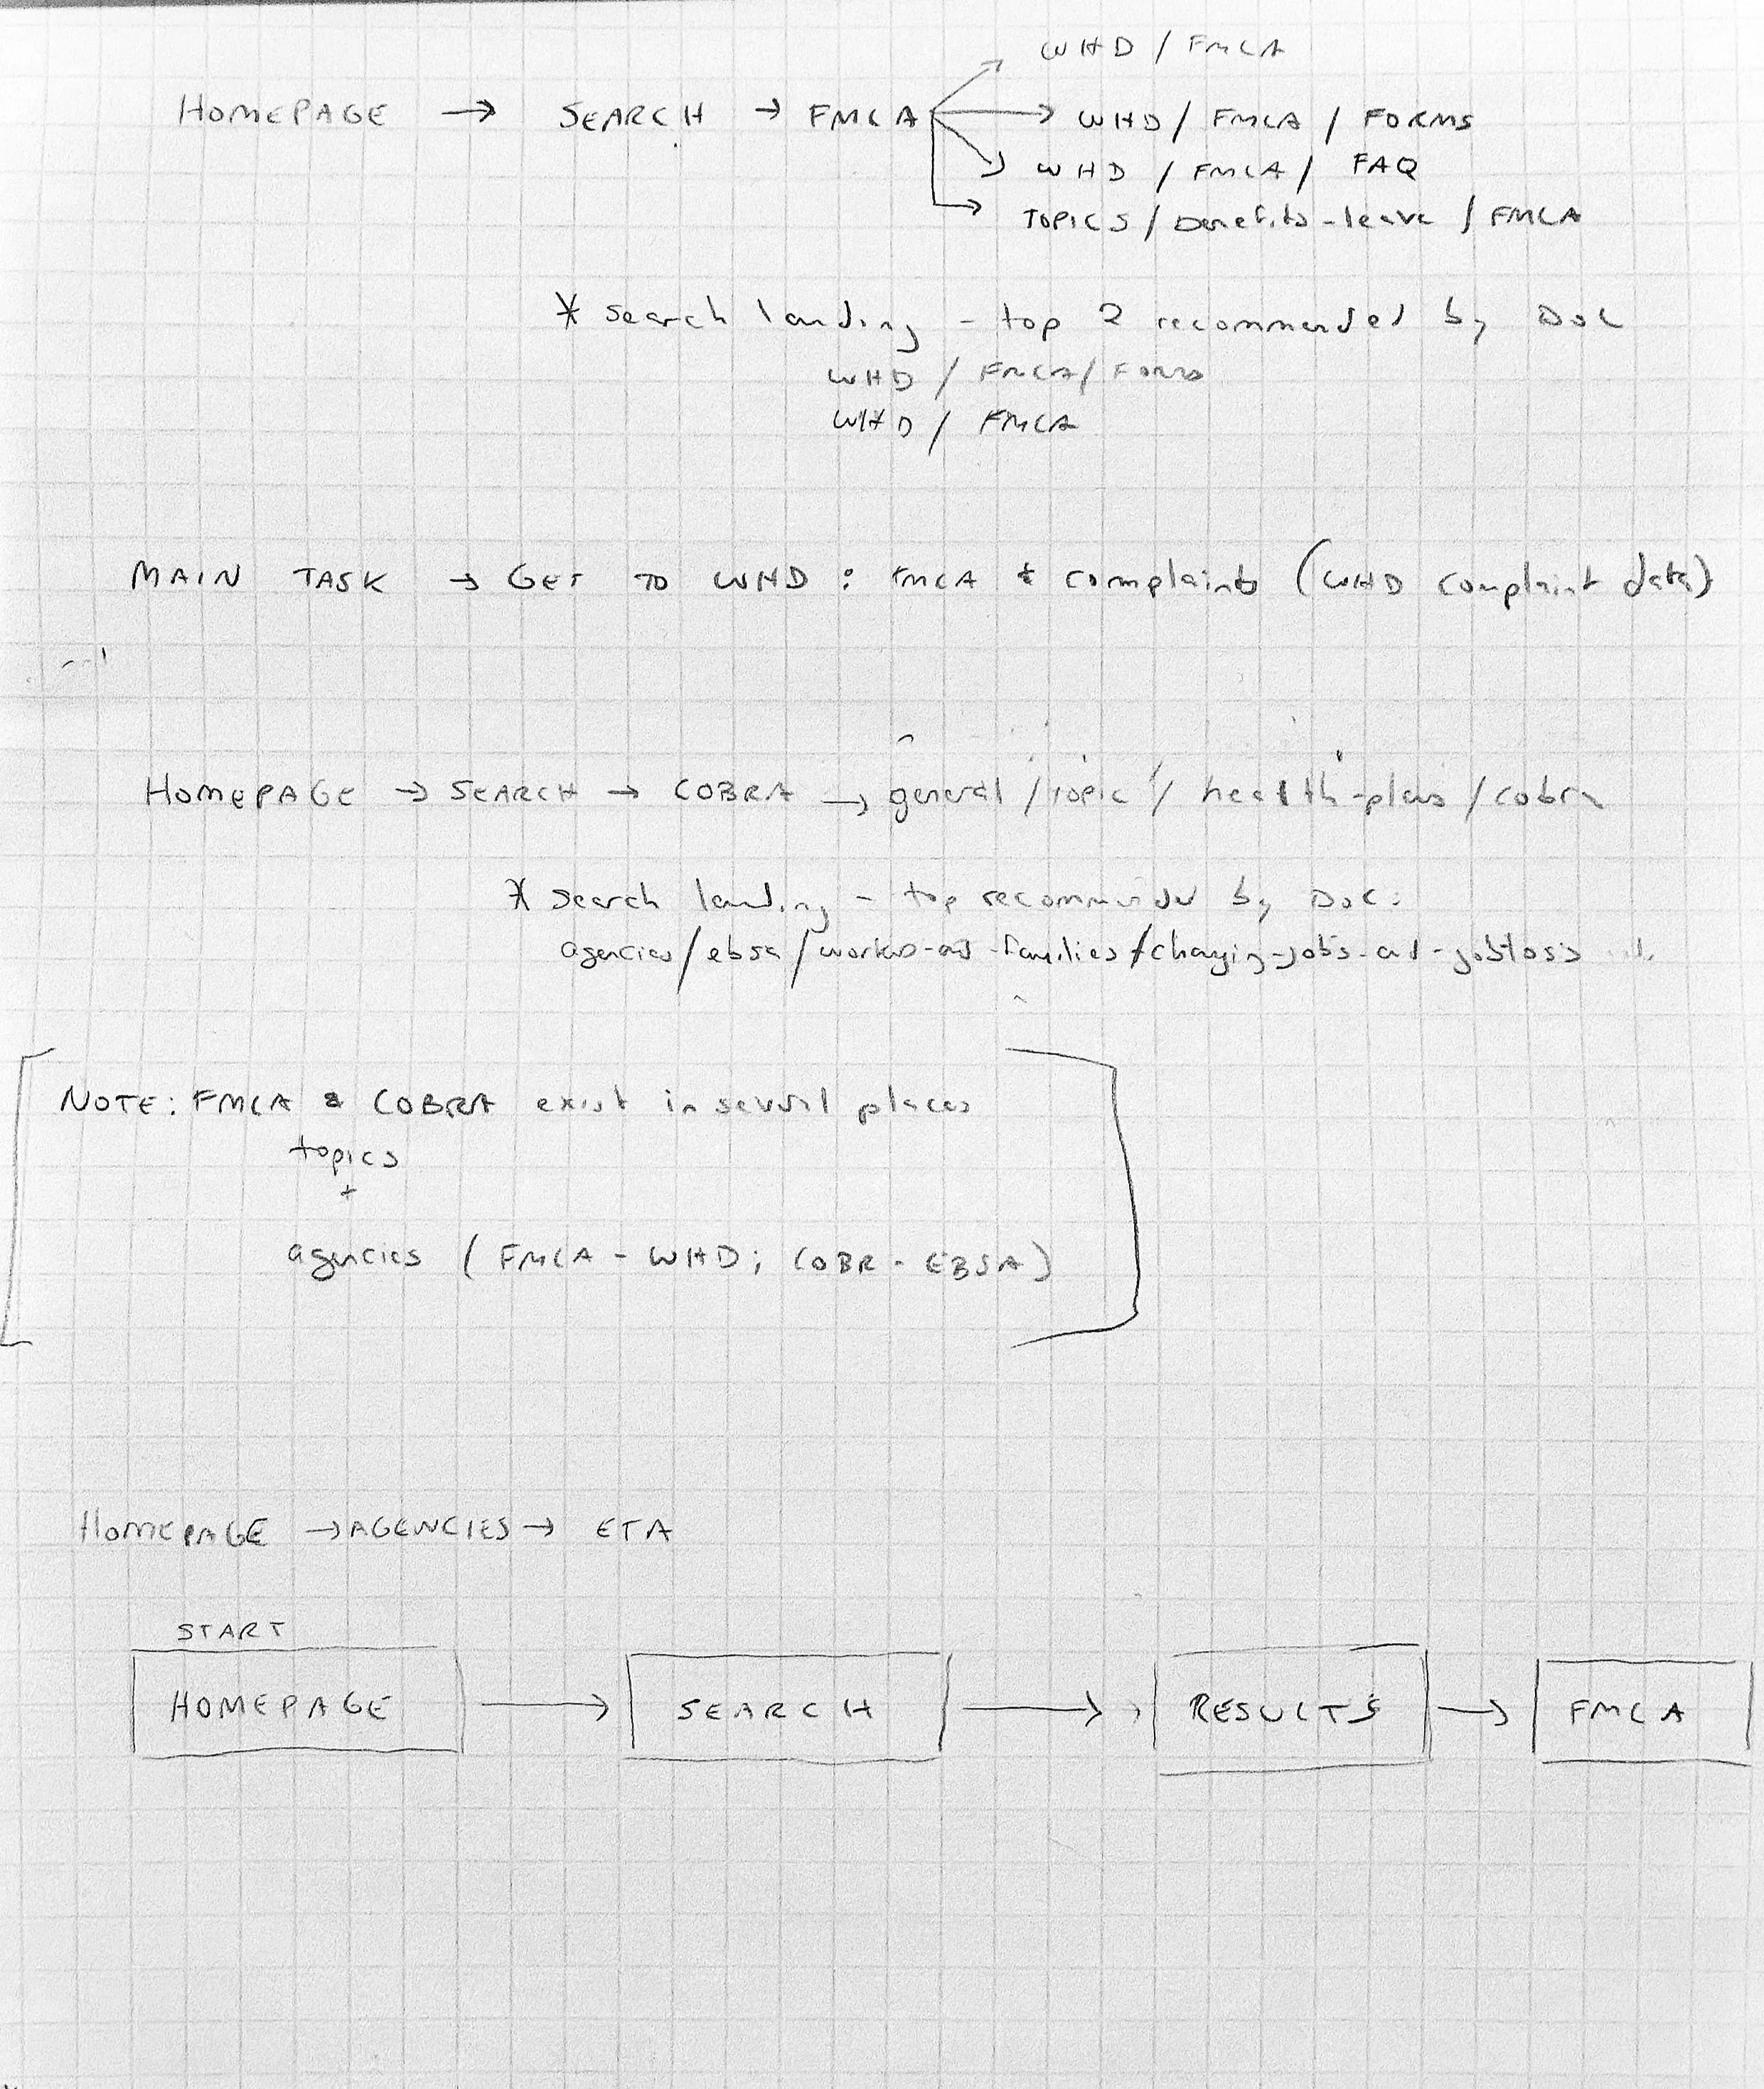 WHD / FMCA
HOMEPAGE → SEARCH → FMCA → WHD / FMCA / FORMS
WHD / FMCA / FAQ
TOPICS / benefits-leave / FMCA
* search landing - top 2 recommended by DOL
WHD / FMCA / FORMS
WHD / FMCA
MAIN TASK → GET TO WHD : FMCA + complaints (WHD complaint data)
HOMEPAGE → SEARCH → COBRA → general / topic / health-plans / cobra
* search landing - top recommended by DOL:
agencies/ebsa/workers-and-families/changing-jobs-and-jobloss
NOTE: FMCA & COBRA exist in several places
topics
+
agencies (FMCA - WHD; COBR - EBSA)
HOMEPAGE → AGENCIES → ETA
START
HOMEPAGE → SEARCH → RESULTS → FMCA